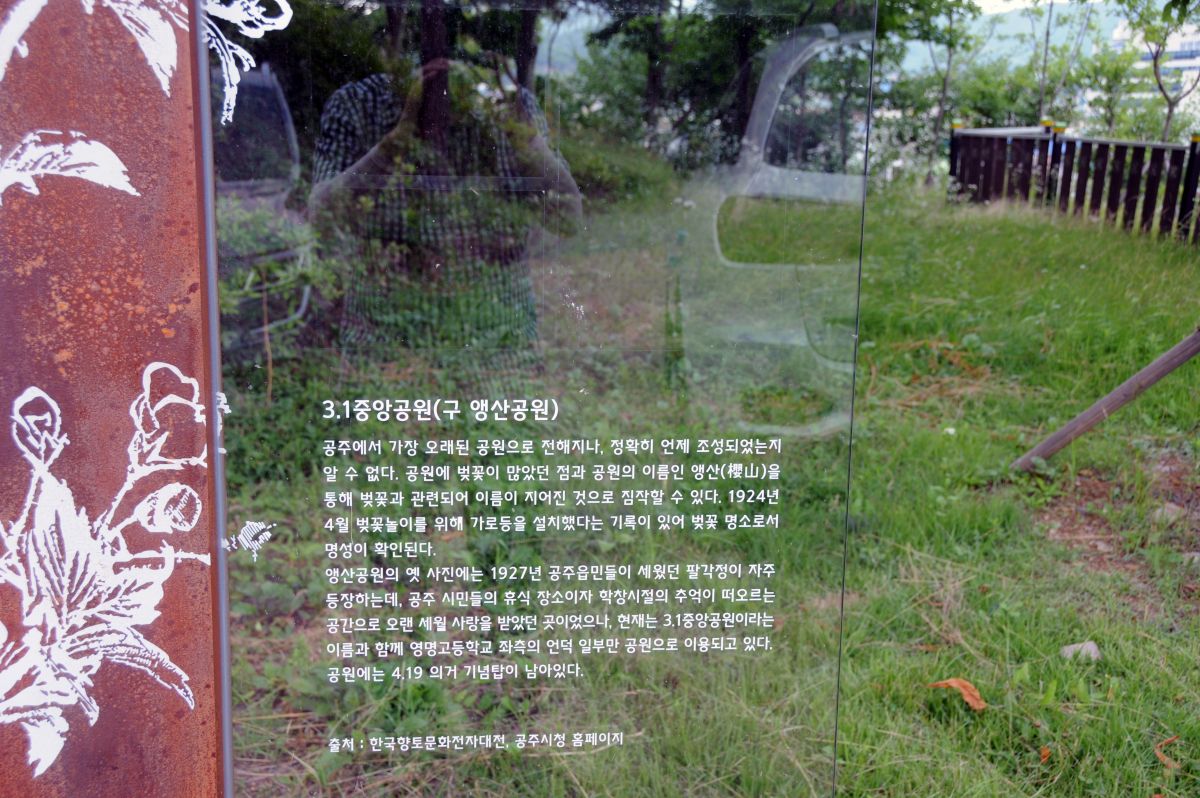 3.1중앙공원(구 앵산공원)
공주에서 가장 오래된 공원으로 전해지나, 정확히 언제 조성되었는지
알 수 없다. 공원에 벚꽃이 많았던 점과 공원의 이름인 앵산(櫻山)을
통해 벚꽃과 관련되어 이름이 지어진 것으로 짐작할 수 있다. 1924년
4월 벚꽃놀이를 위해 가로등을 설치했다는 기록이 있어 벚꽃 명소로서
명성이 확인된다.
앵산공원의 옛 사진에는 1927년 공주읍민들이 세웠던 팔각정이 자주
등장하는데, 공주 시민들의 휴식 장소이자 학창시절의 추억이 떠오르는
공간으로 오랜 세월 사랑을 받았던 곳이었으나, 현재는 3.1중앙공원이라는
이름과 함께 영명고등학교 좌측의 언덕 일부만 공원으로 이용되고 있다.
공원에는 4.19 의거 기념탑이 남아있다.
출처 : 한국향토문화전자대전, 공주시청 홈페이지